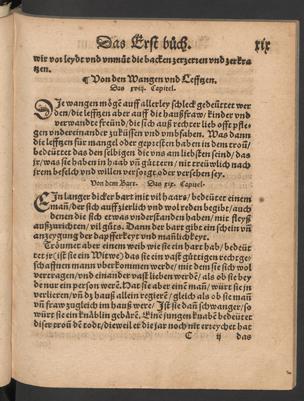 Das Erst bůch. xix
wir vor leydt vnd vnmůt die backen zerzerren vnd zerkra
tzen.
¶ Von den Wangen vnd Lefftzen.
Das xviij. Capitel.
DIe wangen mögē auff allerley schleck gedeütet wer
den/die lefftzen aber auff die haußfraw/kinder vnd
verwandte freünd/die sich auß rechter lieb offt pfle-
gen vndereinander zuküssen vnd vmbfahen. Was dann
die lefftzen für mangel oder gepresten haben in dem troū/
bedeütet das den selbigen die vns am liebsten seind/das
ir/was sie haben in haab vñ güttern/nit treüwlich nach
irem befelch vnd willen versorgt oder versehen sey.
Von dem Bart. Das xix. Capitel.
EIn langer dicker bart mit vil haars/bedeütet einem
man/der sich auff zierlich vnd wol reden begibt/auch
denen die sich etwas vnderstanden haben/mit fleyß
außzurichten/vil gůts. Dann der bart gibt ein schein vñ
anzeygung der dapfferkeyt vnd mañlichkeyt.
Troümet aber einem weib wie sie ein bart hab/bedeü
tet jr (ist sie ein Witwe) das sie ein vast güttigen rechtge-
schaffnen mann vberkommen werde/mit dem sie sich wol
vertragen/vnd einander vast lieben werdē/als ob sie bey
de nur ein person werē. Hat sie aber eine mañ/würt sie in
verlieren/vñ dz hauß allein regierē/gleich als ob sie man
vñ fraw zugleich im hauß were/ Ist sie dañ schwanger/so
würt sie ein knäblin gebärē. Eine jungen knabē bedeütet
diser troū dē todt/dieweil er die jar noch nit erreychet hat
C ij das